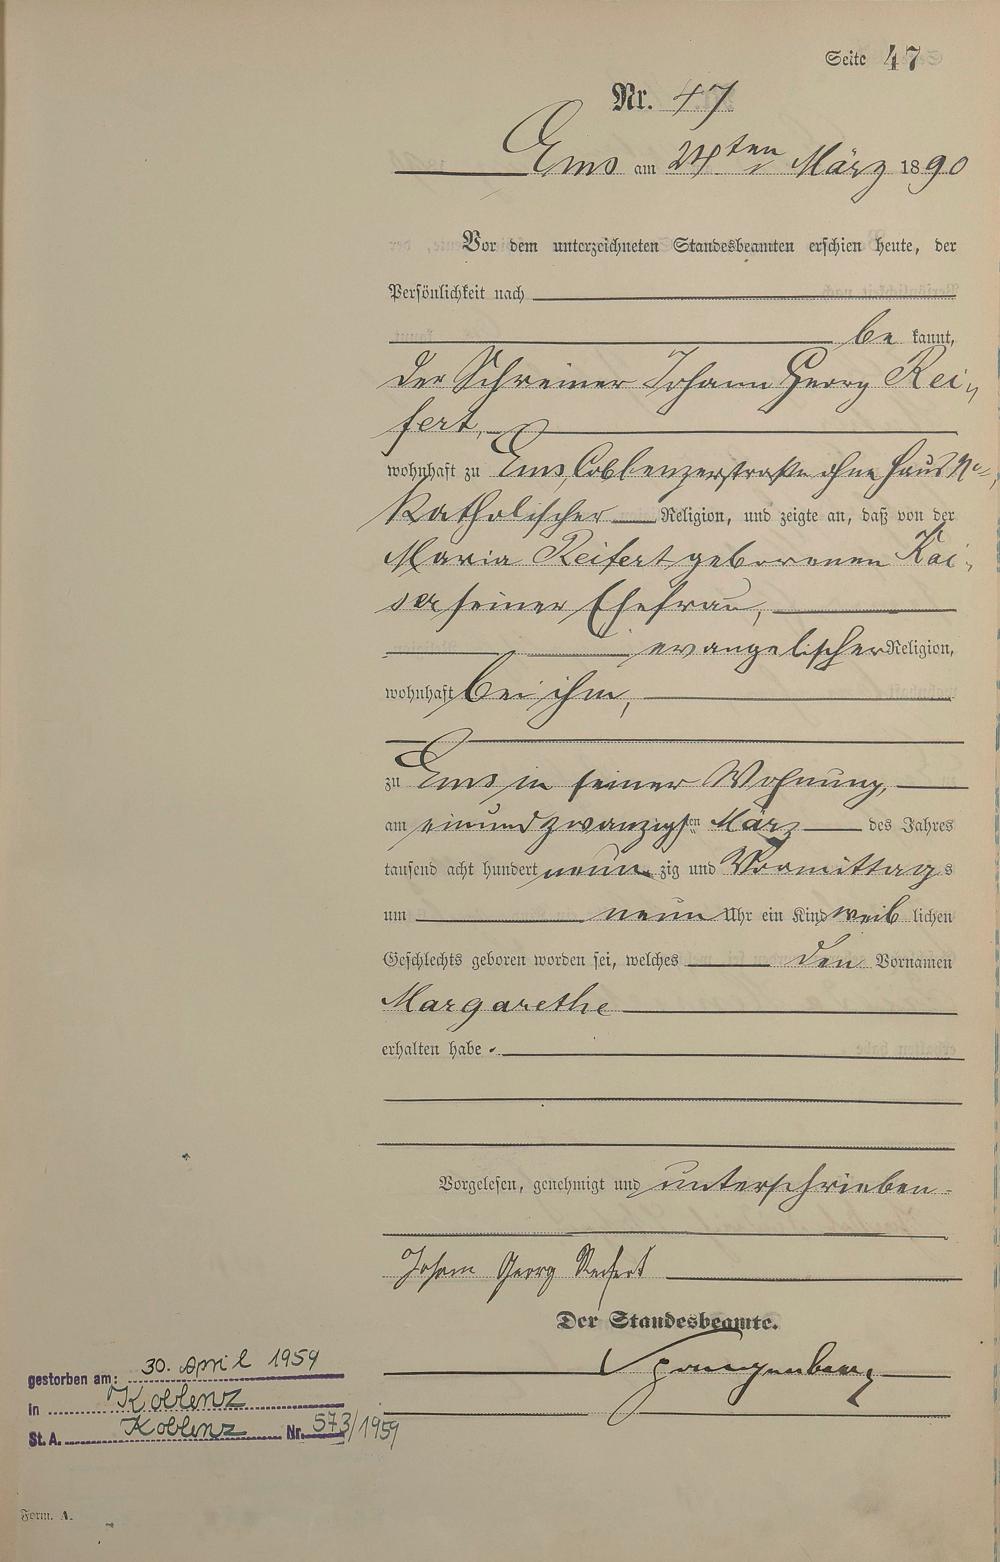 Seite 47
Nr. 47
Ems am 24ten März 1890
Vor dem unterzeichneten Standesbeamten erschien heute, der
Persönlichkeit nach
be kannt,
der Schreiner Johann Georg Rei-
fert,
wohnhaft zu Ems, Coblenzerstraße ohne Haus No,
katholischer Religion, und zeigte an, daß von der
Maria Reifert geborenen Kai-
ser seiner Ehefrau,
evangelischer Religion,
wohnhaft bei ihm,
zu Ems in seiner Wohnung,
am einundzwanzigsten März des Jahres
tausend acht hundert neun zig und Vormittags
um neun Uhr ein Kind weib lichen
Geschlechts geboren worden sei, welches den Vornamen
Margarethe
erhalten habe.
Vorgelesen, genehmigt und unterschrieben
Johann Georg Reifert
Der Standesbeamte.
gestorben am: 30. April 1959
in Koblenz
St. A. Koblenz Nr. 573/1959
Form. A.